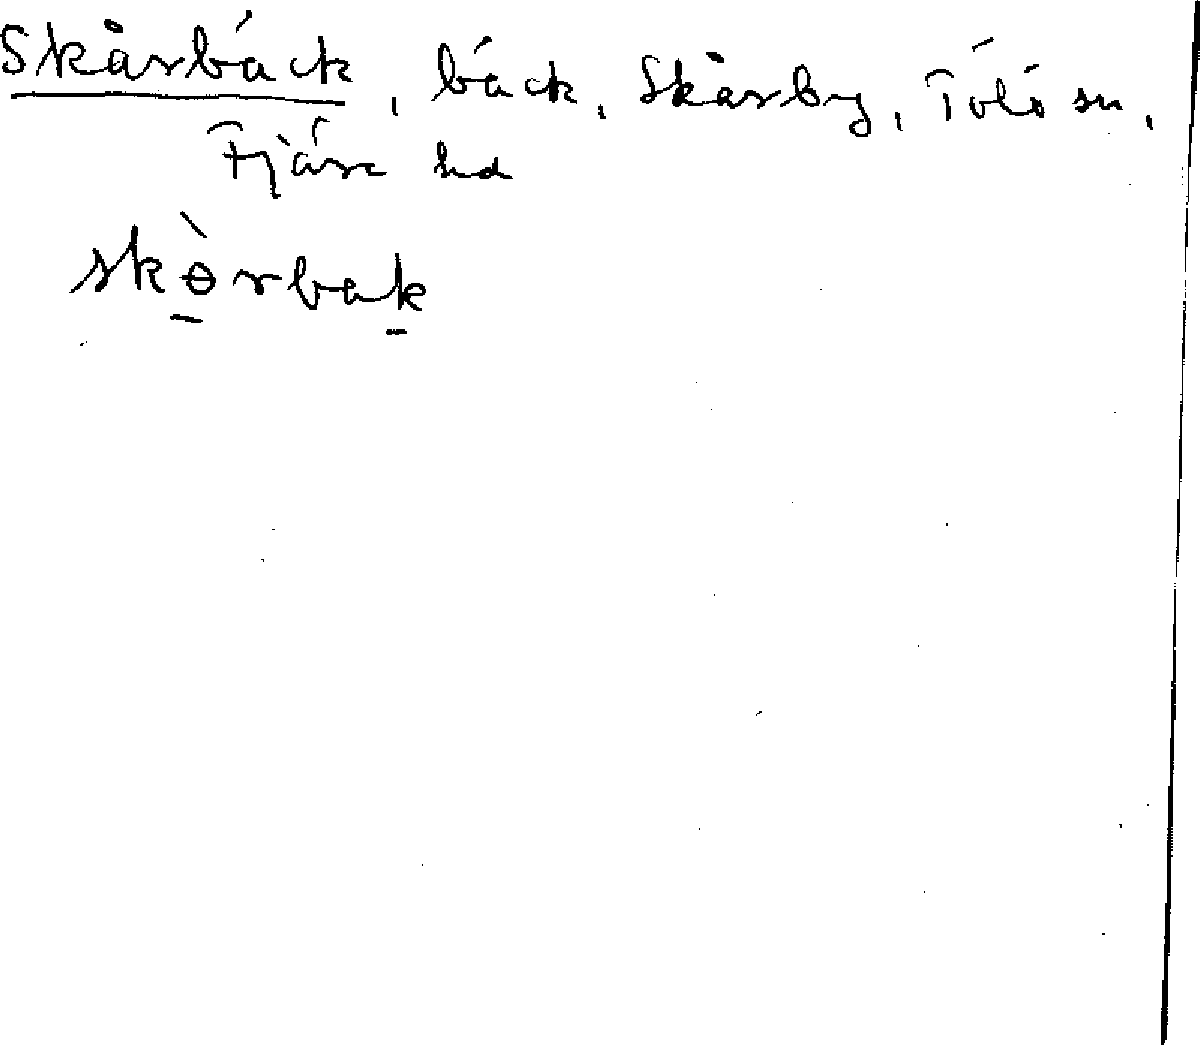 Skårbäck, bäck, Skårby, Tölö sn,
Fjäre hd
skòrbak